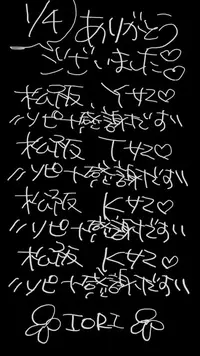 1/4 ありがとう
ございました♡
松阪、Yサマ♡
リピート感謝です!!
松阪 Tサマ♡
リピート感謝です!!
松阪 Kサマ♡
リピート感謝です!!
松阪 Kサマ♡
リピート感謝です!!
IORI